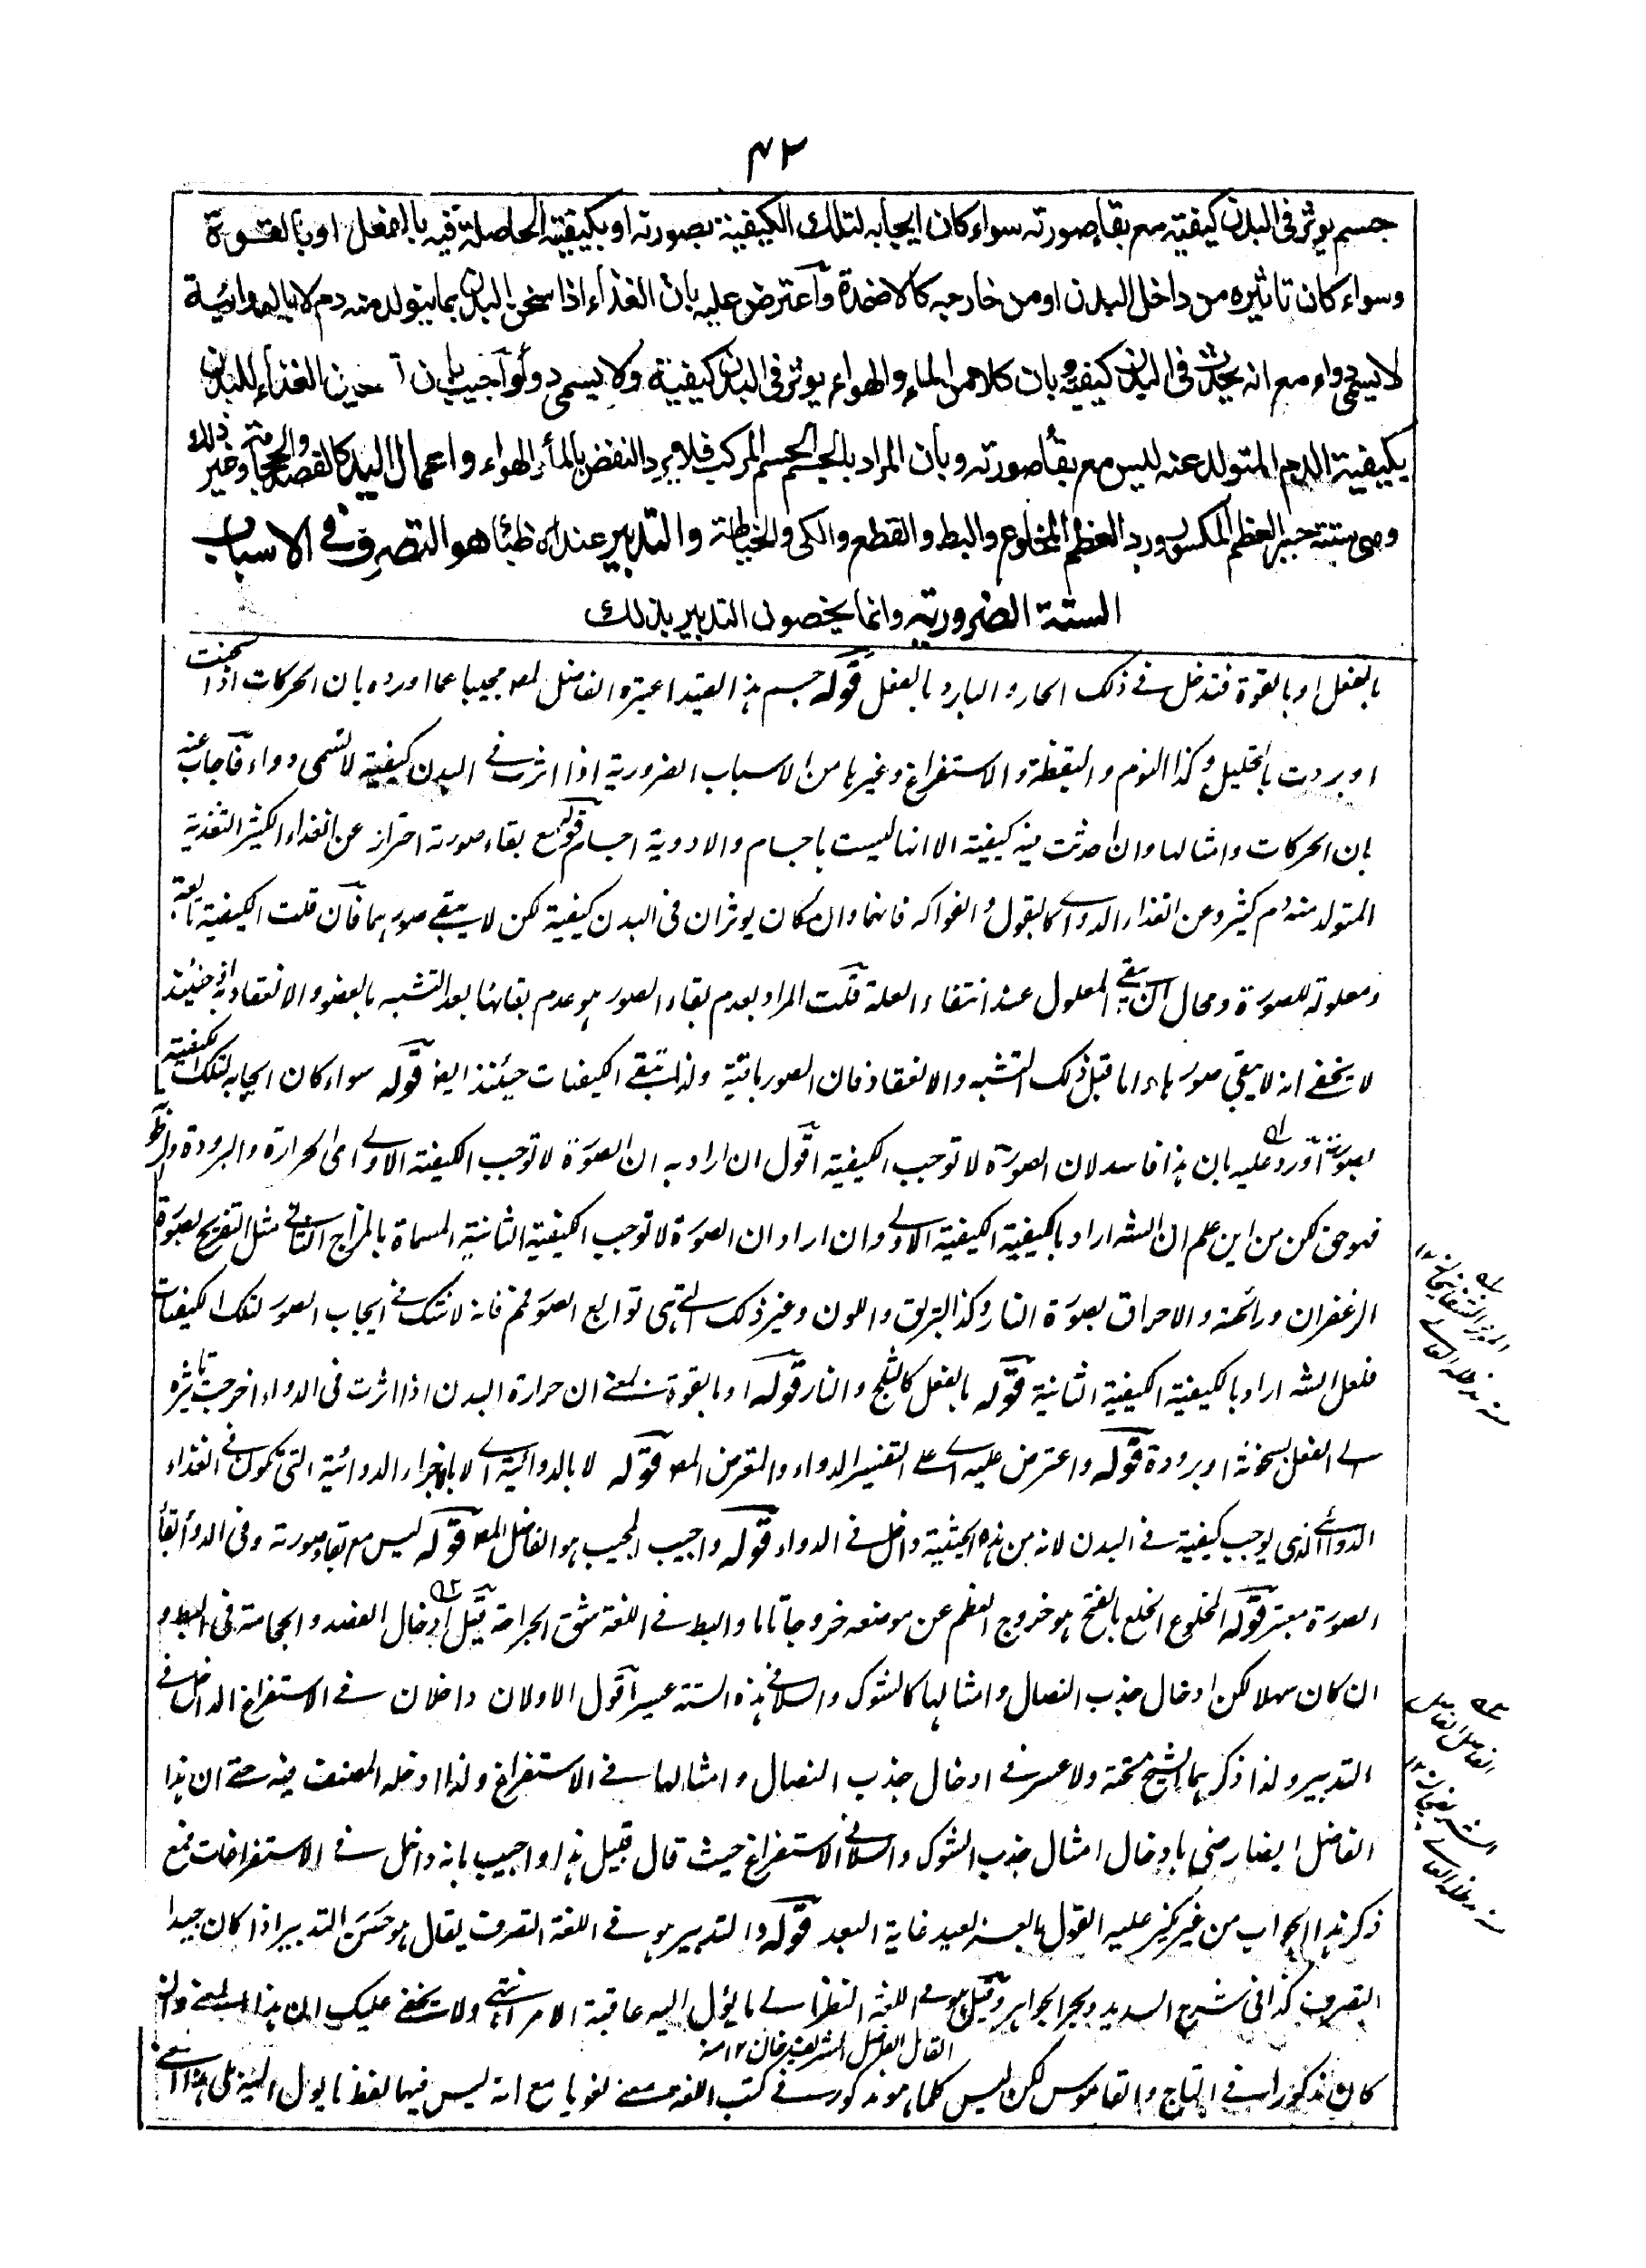 ٤٢
جسم يوثر فى البدن كيفية مع بقاء صورته سواء كان ايجابه لتلك الكيفية بصورته او بكيفيته الحاصلة فيه بالفعل او بالقوة
وسواء كان تاثيره من داخل البدن او من خارجه كالاضمدة وآعترض عليه بان الغذاء اذا سخن البدن بما يتولد منه دم لا بالدوائية
لا يسمى دواء مع انه يحدث فى البدن كيفية وبان كلا من الماء والهواء يوثر فى البدن كيفية ولا يسمى دواء وآجيب بان تسخين الغذاء للبدن
بكيفية الدم المتولد عنه ليس مع بقاء صورته وبان المراد بالجسم الجسم المركب فلا يرد النقض بالماء والهواء واعمال اليد كالفصد والحجامة وغير ذلك
وهى ستة جبر العظم المكسور ورد العظم المخلوع والبط والقطع والكى والخياطة والتدبير عند الاطباء هو التصرف فى الاسباب
الستة الضرورية وانما يخصون التدبير بذلك
بالفعل او بالقوة فتدخل فى ذلك الحار والبارد بالفعل قوله جسم هذا القيد اعتبره الفاضل المص مجيبا عما اورده بان الحركات اذا سخنت
او بردت بالتحليل وكذا النوم واليقظة والاستفراغ وغيرها من الاسباب الضرورية اذا اثرت فى البدن كيفية لا تسمى دواء فآجاب عنه
بان الحركات وامثالها وان احدثت فيه كيفية الا انها ليست باجسام والادوية اجسام قوله مع بقاء صورته احتراز عن الغذاء الكثير التغذية
المتولد منه دم كثير وعن الغذاء الدوائى كالبقول والفواكه فانهما وان كان يوثران فى البدن كيفية لكن لا يبقى صورهما فآن قلت الكيفية تابعة
ومعلولة للصورة ومحال ان يبقى المعلول عند انتفاء العلة قلت المراد بعدم بقاء الصور هو عدم بقائها بعد التشبه بالعضو والانعقاد به اذ حينئذ
لا يخفى انه لا يبقى صورها واما قبل ذلك التشبه والانعقاد فان الصور باقية ولذا تبقى الكيفيات حينئذ ايضا قوله سواء كان ايجابه لتلك الكيفية
بصورته آورد عليه بان هذا فاسد لان الصورة لا توجب الكيفية اقول ان اراد به ان الصورة لا توجب الكيفية الاولى اى الحرارة والبرودة
فهو حق لكن من اين علم ان الشه اراد بالكيفية الكيفية الاولى وان اراد ان الصورة لا توجب الكيفية الثانية المسماة بالمزاج الثانى مثل التفريح بصورة
الزعفران ورائحته والاحراق بصورة النار وكذا البريق واللون وغير ذلك التى هى توابع الصور فمم فانه لا شك فى ايجاب الصور لتلك الكيفيات
فلعل الشه اراد بالكيفية الكيفية الثانية قوله بالفعل كالثلج والنار قوله او بالقوة بمعنى ان حرارة البدن اذا اثرت فى الدواء اخرجت تاثيره
الى الفعل بسخونة او برودة قوله واعترض عليه اى على التفسير الدواء والمعترض المص قوله لا بالدوائية اى لا بالاجزاء الدوائية التى تكون فى الغذاء
الدوائى الذى يوجب كيفية فى البدن لانه من هذه الحيثية داخل فى الدواء قوله واجيب المجيب هو الفاضل المص قوله ليس مع بقاء صورته وفى الدواء بقاء
الصورة معتبر قوله المخلوع الخلع بالفتح هو خروج العظم عن موضعه خروجا تاما والبط فى اللغة شق الجراحة قيل ادخال الفصد والحجامة فى البط و
ان كان سهلا لكن ادخال جذب النصال وامثالها كالشوك والسلا فى هذه الستة عسير آقول الاولان داخلان فى الاستفراغ الداخل فى
التدبير ولذا ذكرهما الشيخ تحته ولا عسر فى ادخال جذب النصال وامثالها فى الاستفراغ ولذا ادخله المصنف فيه حتى ان هذا
الفاضل ايضا رضى بادخال امثال جذب الشوك والسلا فى الاستفراغ حيث قال قبيل هذا واجيب بانه داخل فى الاستفراغات فمع
ذكر هذا الجواب من غير نكير عليه القول بالعسر بعيد غاية البعد قوله والتدبير هو فى اللغة التصرف يقال هو حسن التدبير اذا كان جيدا
التصرف كذا فى شرح السديد وبحر الجواهر وقيل هو فى اللغة النظر الى ما يؤل اليه عاقبة الامر انتهى ولا يخفى عليك ان هذا المعنى وان
القائل الفاضل الشريف خان ١٢ منه
كان مذكورا فى التاج والقاموس لكن ليس كلما هو مذكور فى كتب اللغة معنى لغويا مع انه ليس فيهما لفظ ما يول اليه